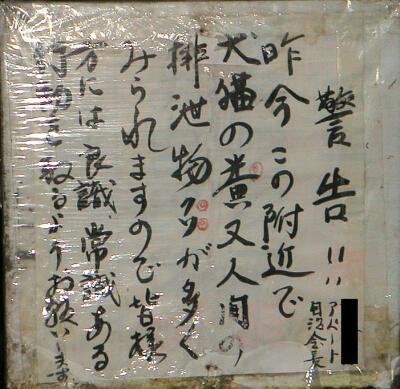 警告!!
昨今この附近で
犬猫の糞又人間の
排泄物が多く
みられますので皆様
方には良識、常識ある
行動を取るようお願いします
アパート
自治会長